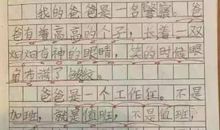 我的爸爸是一名警察，爸
爸有着高高的个子，长着一双
炯炯有神的眼睛，笑的时候眼
角布满了皱纹。
爸爸是一个工作狂，不是
加班，就是值班，不是值班，